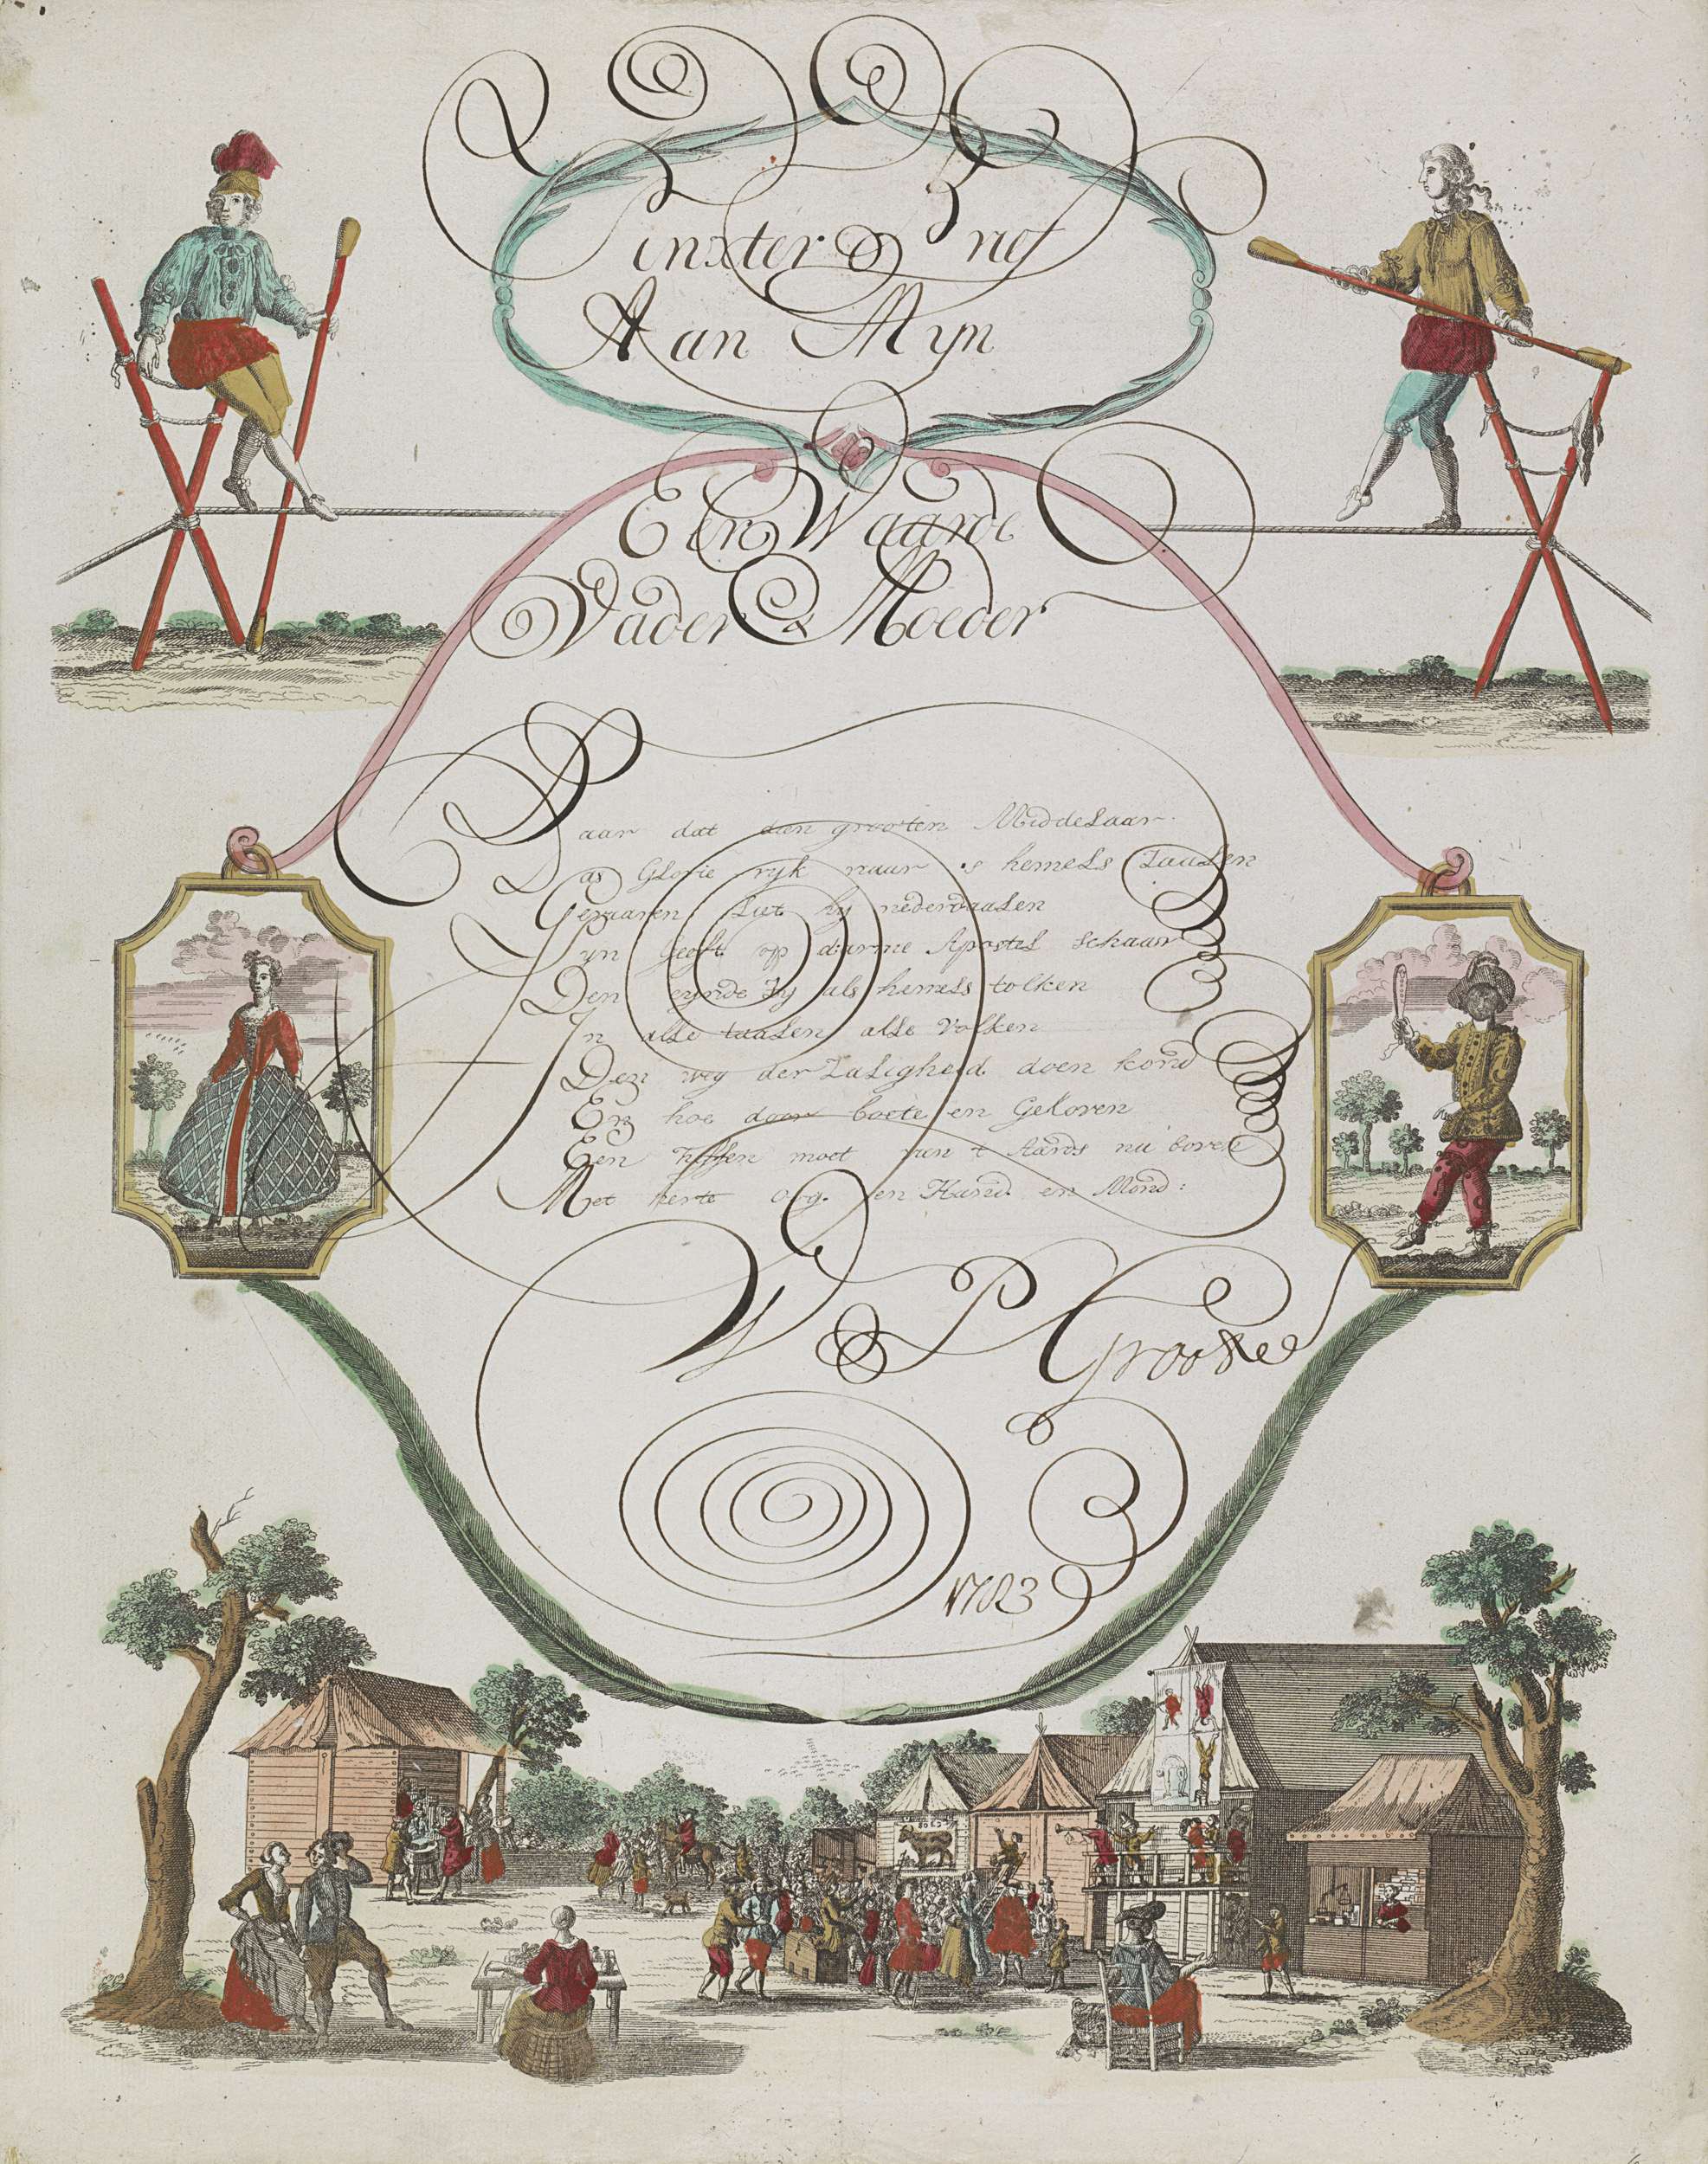 Pinxter Brief
Aan Myn
Eer Waarde
Vader & Moeder
Daar dat dan grooten Middelaar.
Was Glorie ryk naar 's hemels Zaalen
Gevaaren Liet hy nederdaalen
Syn geest op d'arme Apostel schaar
Den eynde Zy als hemels tolken
In alle taalen alle Volken
Den weg der Zaligheid doen kond
En hoe door boete en Geloven
Een moet van t Aards na boven
Met herte oog en Hand en Mond:
W P Groote
1783